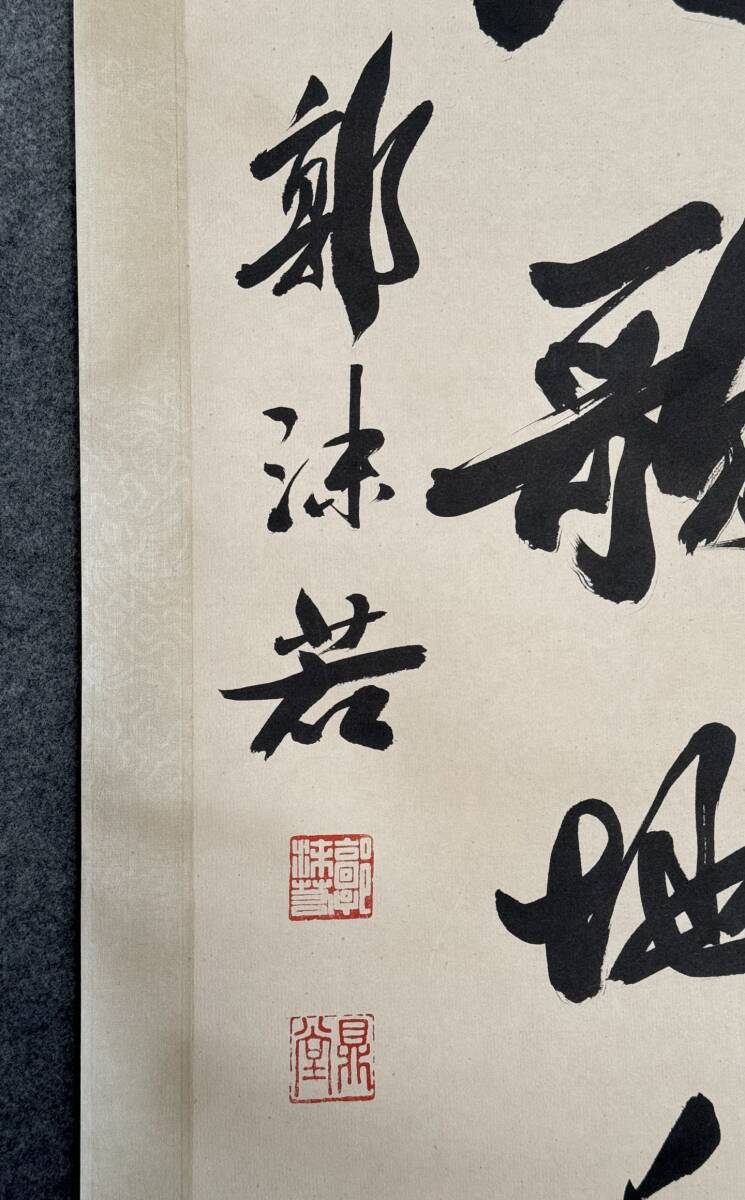 歌地
郭沫若
郭沫若
鼎堂